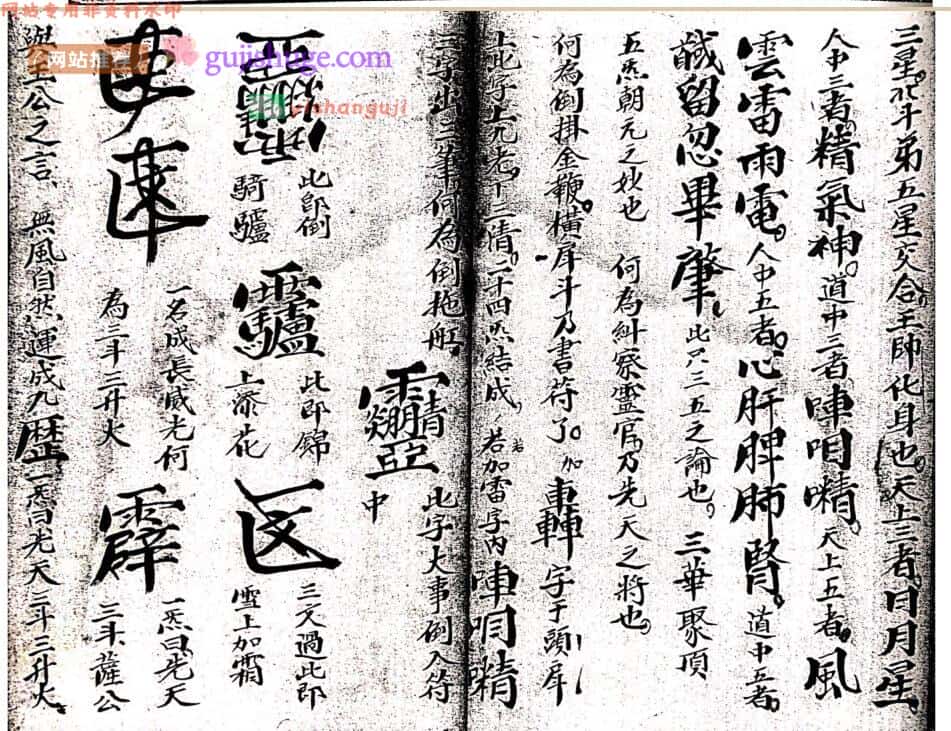 网站专用非资料水印
网站推荐
gujishuge.com
yishanguji
三星。北斗第五星交合。王帥化身也。天上三者。日月星。
人中三者。精氣神。道中三者 唓呬嚽。天上五者。風
雲雷雨電。人中五者。心肝脾肺腎。道中五者。
馘留忽畢肇。此只三五之論也。三華聚頂
五炁朝元之妙也 何為糾察靈官。乃先天之將也。
何為倒掛金鞭。橫犀斗乃書符了。加 字于頭犀
上此字上九老。十二情。二十四炁結成。若加雷字內
三字出三筆 何為倒拖
此字大事倒入符
中
此即倒
騎驢
此即錦
上添花
三文過此即
雪上加霜
一名成長咸光何
為三斗三升火
一炁曰。先天
三斗。薩公
與王公之言、無風自然運成九 一炁曰先天三斗三升火